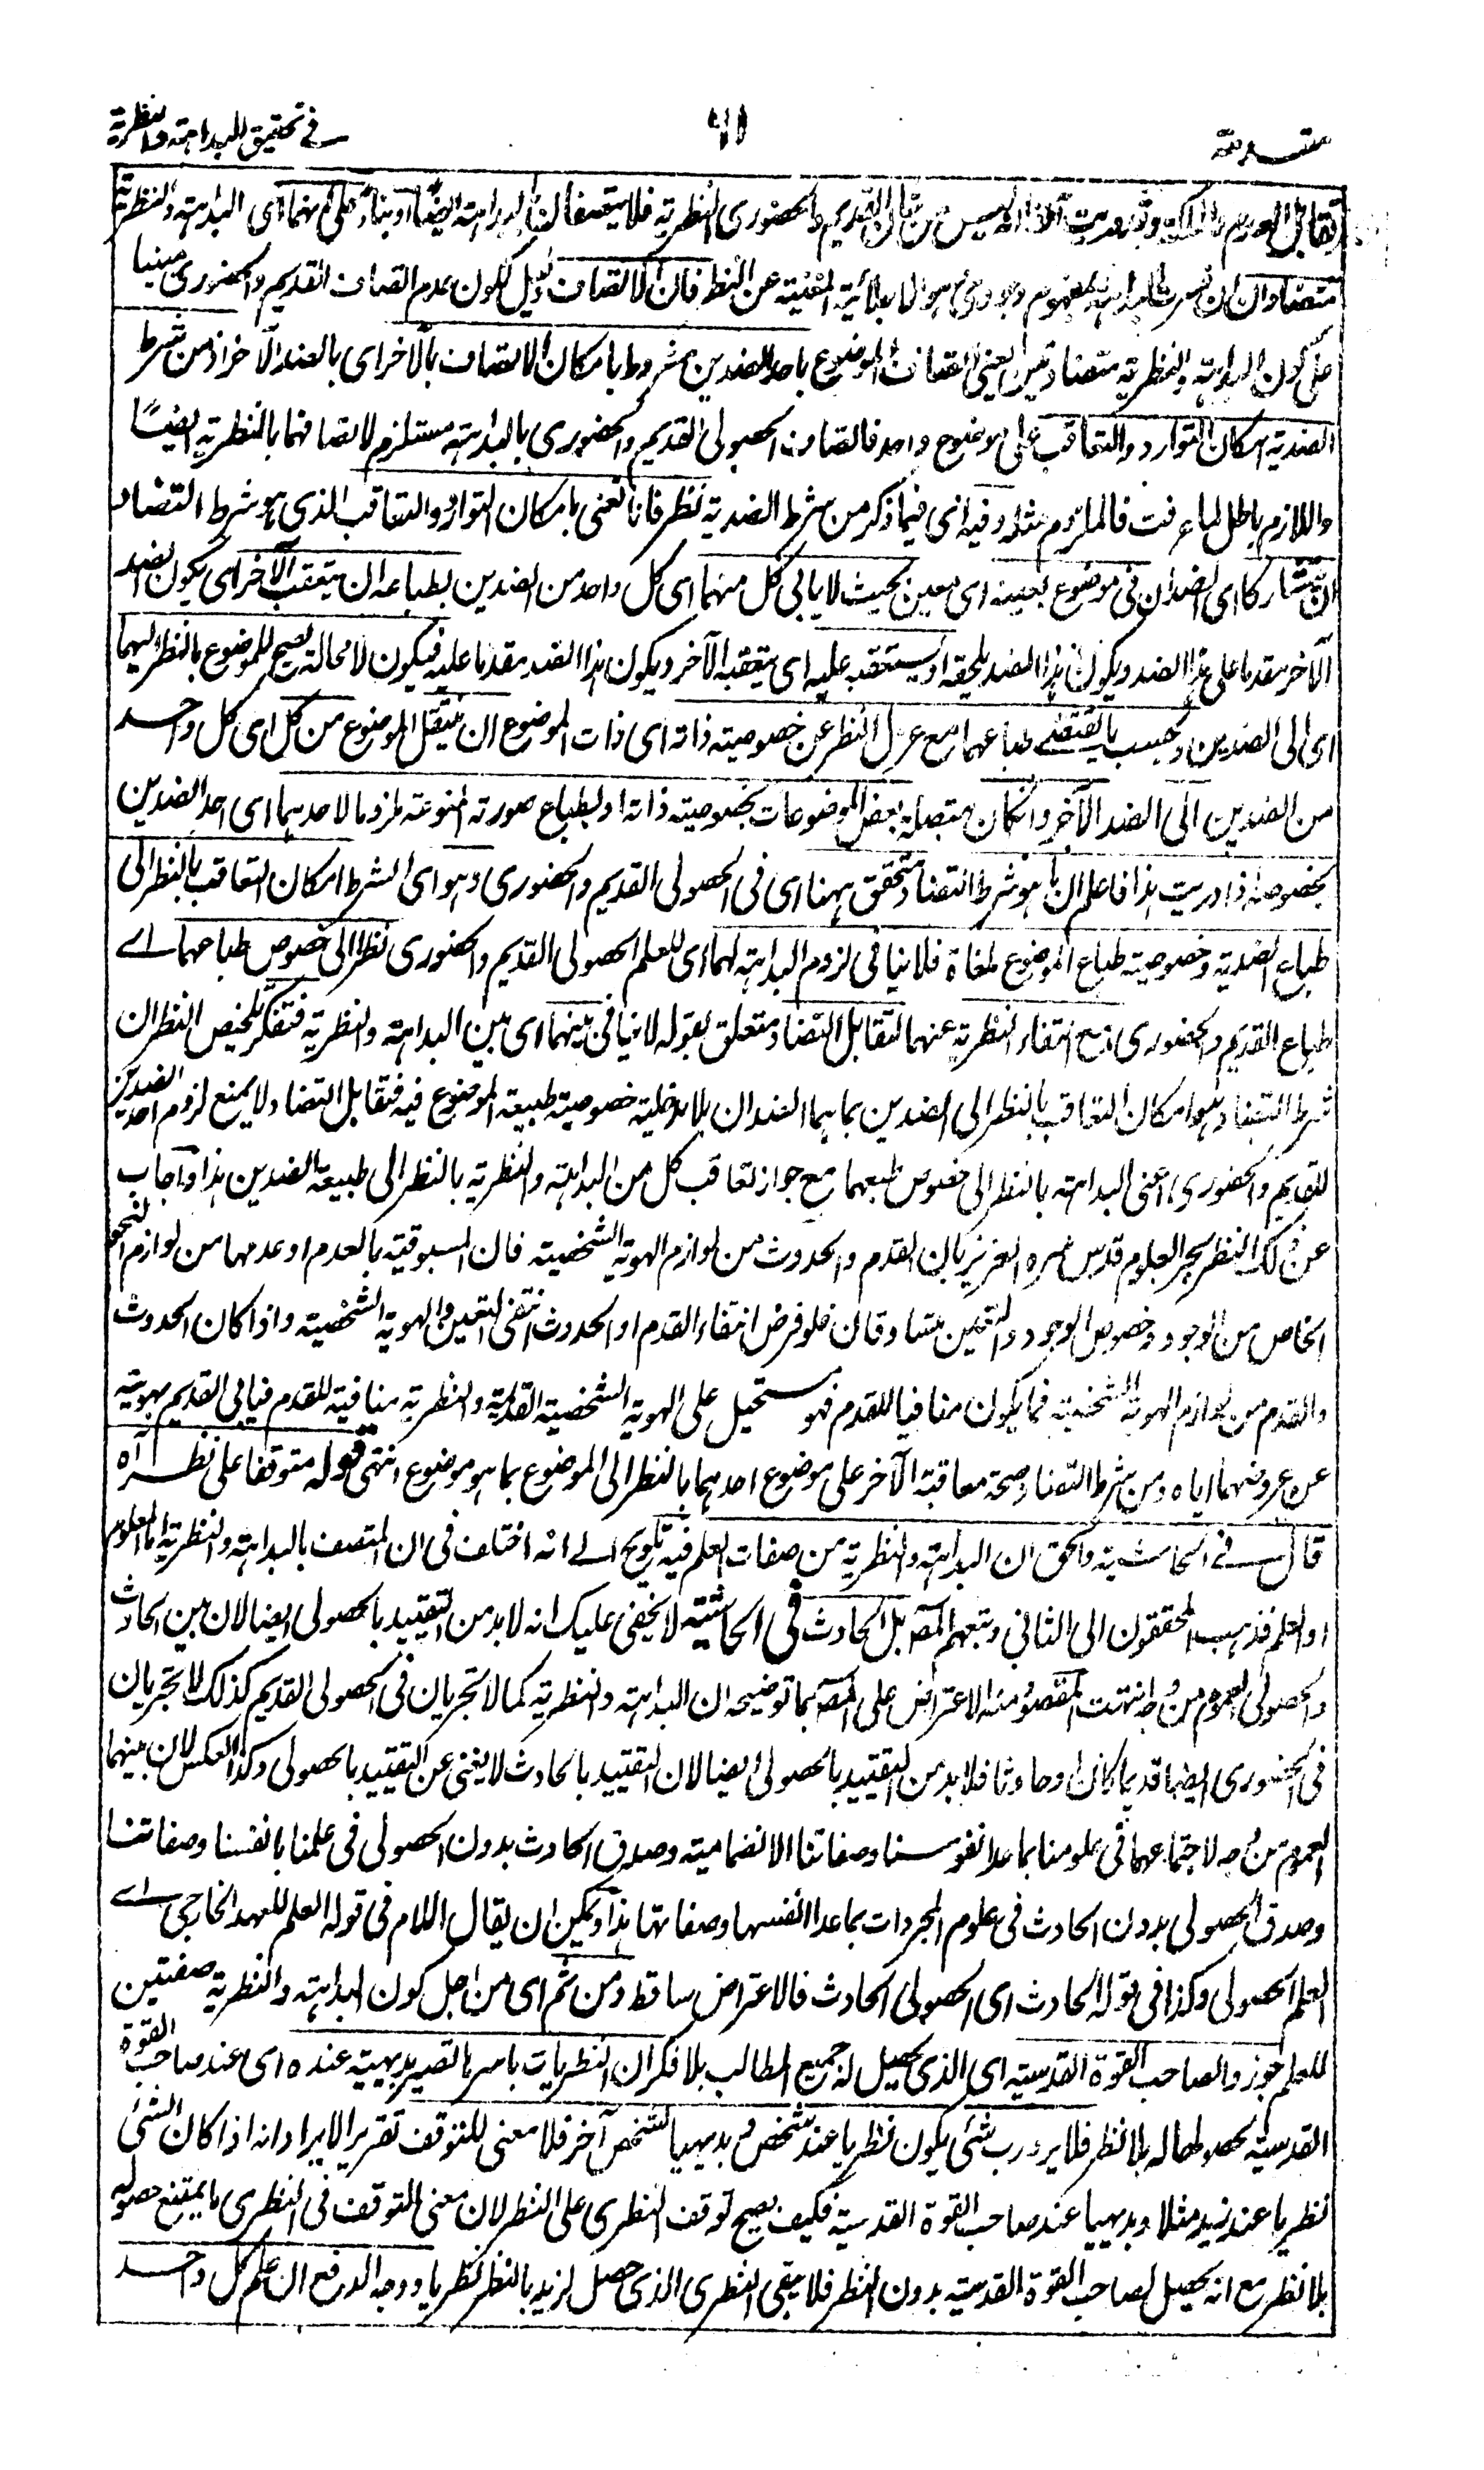 مقدمة
في تحقيق البداهته والنظرية
تقابل العدم والملكة وقد دريت آنفا انه ليس من شان القديم والحضوري النظرية فلا يتصفان بالبداهته ايضا او بناء على انهما اى البداهته والنظرية
متضادان ان فسرت البداهته بمفهوم وجودى هو الاغنائية عن النظر فان الاتصاف دليل لكون عدم اتصاف القديم والحضورى مبنيا
على كون البداهته والنظرية متضادتين يعنى اتصاف الموضوع باحد الضدين مشروط بامكان الاتصاف بالآخر اى بالضد الآخر اذ من شرط
الضدية امكان التوارد والتعاقب على موضوع واحد فاتصاف الحصولى القديم والحضورى بالبداهته مستلزم لاتصافهما بالنظرية ايضًا
واللازم باطل لما عرفت فالملزوم مثله وفيه اى فيما ذكر من شرط الضدية نظر فانا نعنى بامكان التوارد والتعاقب الذى هو شرط التضاد
ان يتشاركا اى الضدان فى موضوع بعينه اى معين بحيث لا يابى كل منهما اى كل واحد من الضدين بطباعه ان يتعقب الآخر اى يكون الضد
الآخر مقدما على هذا الضد ويكون هذا الضد يلحقه او يستعقبه عليه اى يتعقبه الآخر ويكون هذا الضد مقدما عليه فيكون لا محالة يصح للموضوع بالنظر اليهما
اى الى الضدين وبحسب ما يقتضے طباعهما مع عزل النظر عن خصوصيته ذاته اى ذات الموضوع ان ينتقل الموضوع من كل اى كل واحد
من الضدين الى الضد الآخر وانكان متصلة بعض الموضوعات بخصوصيته ذاته او بطباع صورته المنوعته ملزوما لاحدهما اى احد الضدين
بخصوصه اذا دريت هذا فاعلم ان ما هو شرط التضاد متحقق ههنا اى فى الحصولى القديم والحضورى وهو اى الشرط امكان التعاقب بالنظر الى
طباع الضدية وخصوصيته طباع الموضوع ملغاة فلا ينافى لزوم البداهته لهما اى للعلم الحصولى القديم والحضورى نظرا الى خصوص طباعهما اے
طباع القديم والحضورى مع انتفاء النظرية عنهما لتقابل التضاد متعلق بقوله لا ينافى بينهما اى بين البداهته والنظرية فتفكر تلخيص النظر ان
شرط التضاد هو امكان التعاقب بالنظر الى الضدين بما هما الضدان بلا مدخلية خصوصيته طبيعة الموضوع فيه فتقابل التضاد لا يمنع لزوم احد الضدين
للقديم والحضورى اعنى البداهته بالنظر الى خصوص طبعهما مع جواز تعاقب كل من البداهته والنظرية بالنظر الى طبيعة الضدين هذا واجاب
عن ذلك النظر بحر العلوم قدس سره العزيز بان القدم والحدوث من لوازم الهوية الشخصيته فان المسبوقية بالعدم او عدمها من لوازم النحو
الخاص من الوجود وخصوص الوجود والتعين متساوقان فلو فرض انتفاء القدم او الحدوث انتفى التعين والهوية الشخصيته واذا كان الحدوث
والقدم من لوازم الهوية الشخصيته فما يكون منافيا للقدم فهو مستحيل على الهوية الشخصية القديمة والنظرية منافية للقدم فيابى القديم بهويته
عن عروضهما اياه ومن شرط التضاد صحة معاقبة الآخر على موضوع احدهما بالنظر الى الموضوع بما هو موضوع انتهى قوله متوقفا على نظر آه
قال فى الحاشية والحق ان البداهته والنظرية من صفات العلم فيه تلويح الے انه اختلف فى ان المتصف بالبداهته والنظرية اما المعلوم
او العلم فذهب المحققون الى الثانى وتبعهم المصـ بل الحادث فى الحاشية لا يخفى عليك انه لا بد من التقييد بالحصولى ايضا لان بين الحادث
والحصولى العموم من وجه انتهت المقصود منه الاعتراض على المصـ بما توضيحه ان البداهته والنظرية كما لا تجريان فى الحصولى القديم كذلك لا تجريان
فى الحضورى ايضا قديما كان او حادثا فلا بد من التقييد بالحصولى ايضا لان التقييد بالحادث لا يغنى عن التقييد بالحصولى وكذا العكس لان بينهما
العموم من وجه لاجتماعهما فى علومنا بما عدا نفوسنا وصفاتنا الانضمامية وصدق الحادث بدون الحصولى فى علمنا بانفسنا وصفاتنا
وصدق الحصولى بدون الحادث فى علوم المجردات بما عدا انفسها وصفاتها هذا ويمكن ان يقال اللام فى قوله العلم للعهد الخارجى اے
العلم الحصولى وكذا فى قوله الحادث اى الحصولى الحادث فالاعتراض ساقط ومن ثم اى من اجل كون البداهته والنظرية صفتين
للعلم جوزوا لصاحب القوة القدسيته اى الذى يحصل له جميع المطالب بلا فكر ان النظريات باسرها تصير بديهيته عنده اى عند صاحب القوة
القدسية لحصولها له بلا نظر فلا يرد رب شئ يكون نظريا عند شخص وبديهيا لشخص آخر فلا معنى للتوقف تقرير الايراد انه اذا كان الشئ
نظريا عند زيد مثلا وبديهيا عند صاحب القوة القدسية فكيف يصح توقف النظرى على النظر لان معنى التوقف فى النظرى ما يمتنع حصوله
بلا نظر مع انه يحصل لصاحب القوة القدسيته بدون النظر فلا يبقى النظرى الذى حصل لزيد بالنظر نظريا ووجه الدفع ان علم كل واحد